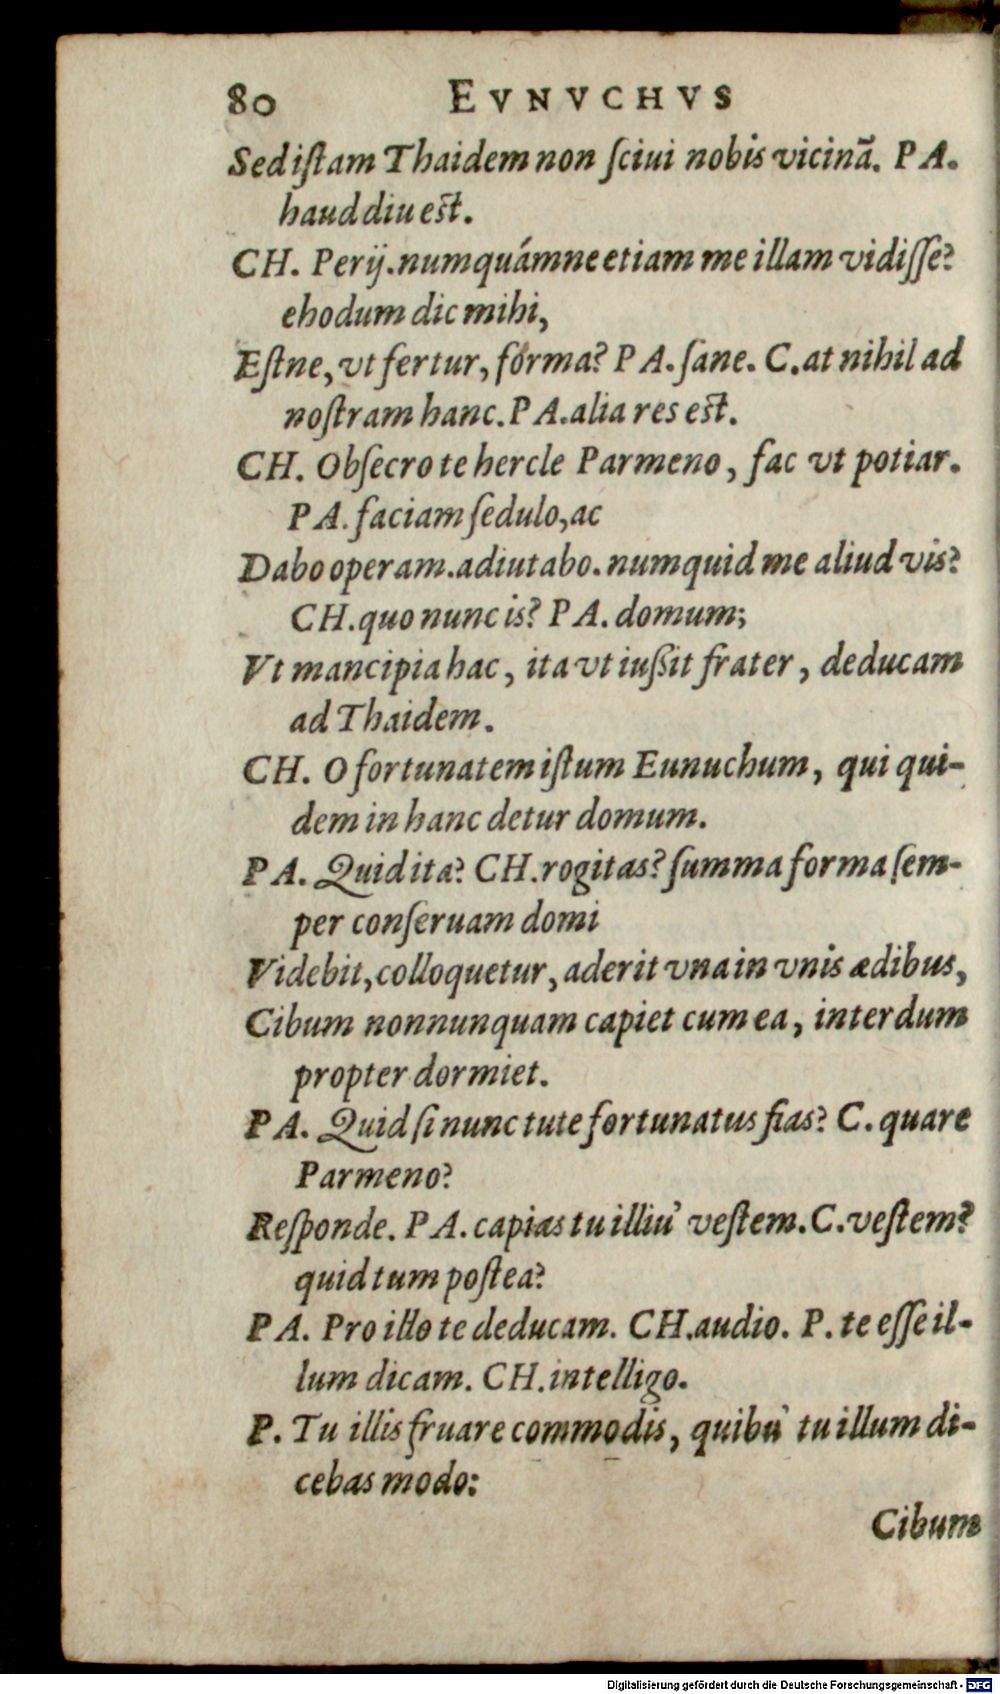 80 EVNVCHVS
Sed iſtam Thaidem non ſciui nobis vicinã. PA.
haud diu eſt.
CH. Perij. numquámne etiam me illam vidiſſe?
ehodum dic mihi,
Eſtne, vt fertur, forma? PA. ſane. C. at nihil ad
noſtram hanc. PA. alia res eſt.
CH. Obſecro te hercle Parmeno, fac vt potiar.
PA. faciam ſedulo, ac
Dabo operam. adiutabo. numquid me aliud vis?
CH. quo nunc is? PA. domum;
Vt mancipia hac, ita vt iußit frater, deducam
ad Thaidem.
CH. O fortunatem iſtum Eunuchum, qui qui-
dem in hanc detur domum.
PA. Quid ita? CH. rogitas? ſumma forma ſem-
per conſeruam domi
Videbit, colloquetur, aderit vna in vnis ædibus,
Cibum nonnunquam capiet cum ea, interdum
propter dormiet.
PA. Quid ſi nunc tute fortunatus fias? C. quare
Parmeno?
Reſponde. PA. capias tu illiu' veſtem. C. veſtem?
quid tum poſtea?
PA. Pro illo te deducam. CH. audio. P. te eſſe il-
lum dicam. CH. intelligo.
P. Tu illis fruare commodis, quibu' tu illum di-
cebas modo:
Cibum
Digitalisierung gefördert durch die Deutsche Forschungsgemeinschaft - DFG